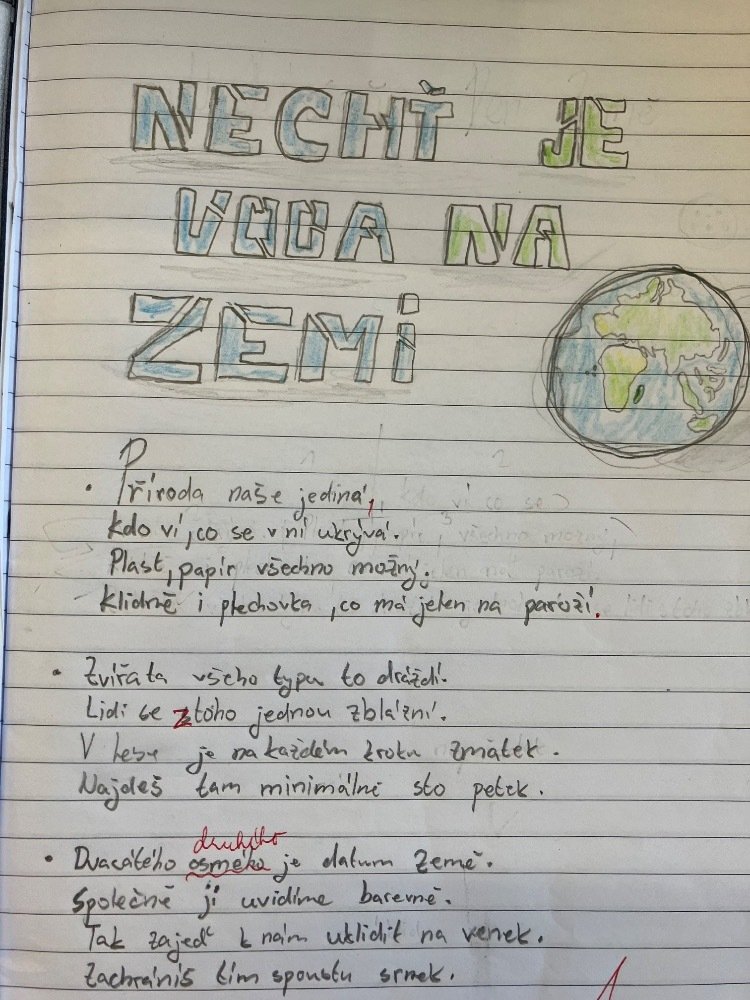 NECHŤ JE
VODA NA
ZEMI
P
• Příroda naše jediná,
kdo ví, co se v ní ukrývá.
Plast, papír všechno možný.
klidně i plechovka, co má jelen na paroží.
• Zvířata všeho typu to dráždí.
Lidi se z toho jednou zblázní.
V lese je na každém kroku zmatek.
Najdeš tam minimálně sto petek.
druhého
• Dvacátého osmého je datum Země.
Společně ji uvidíme barevně.
Tak zajeď k nám uklidit na venek.
Zachráníš tím spoustu srnek.
1